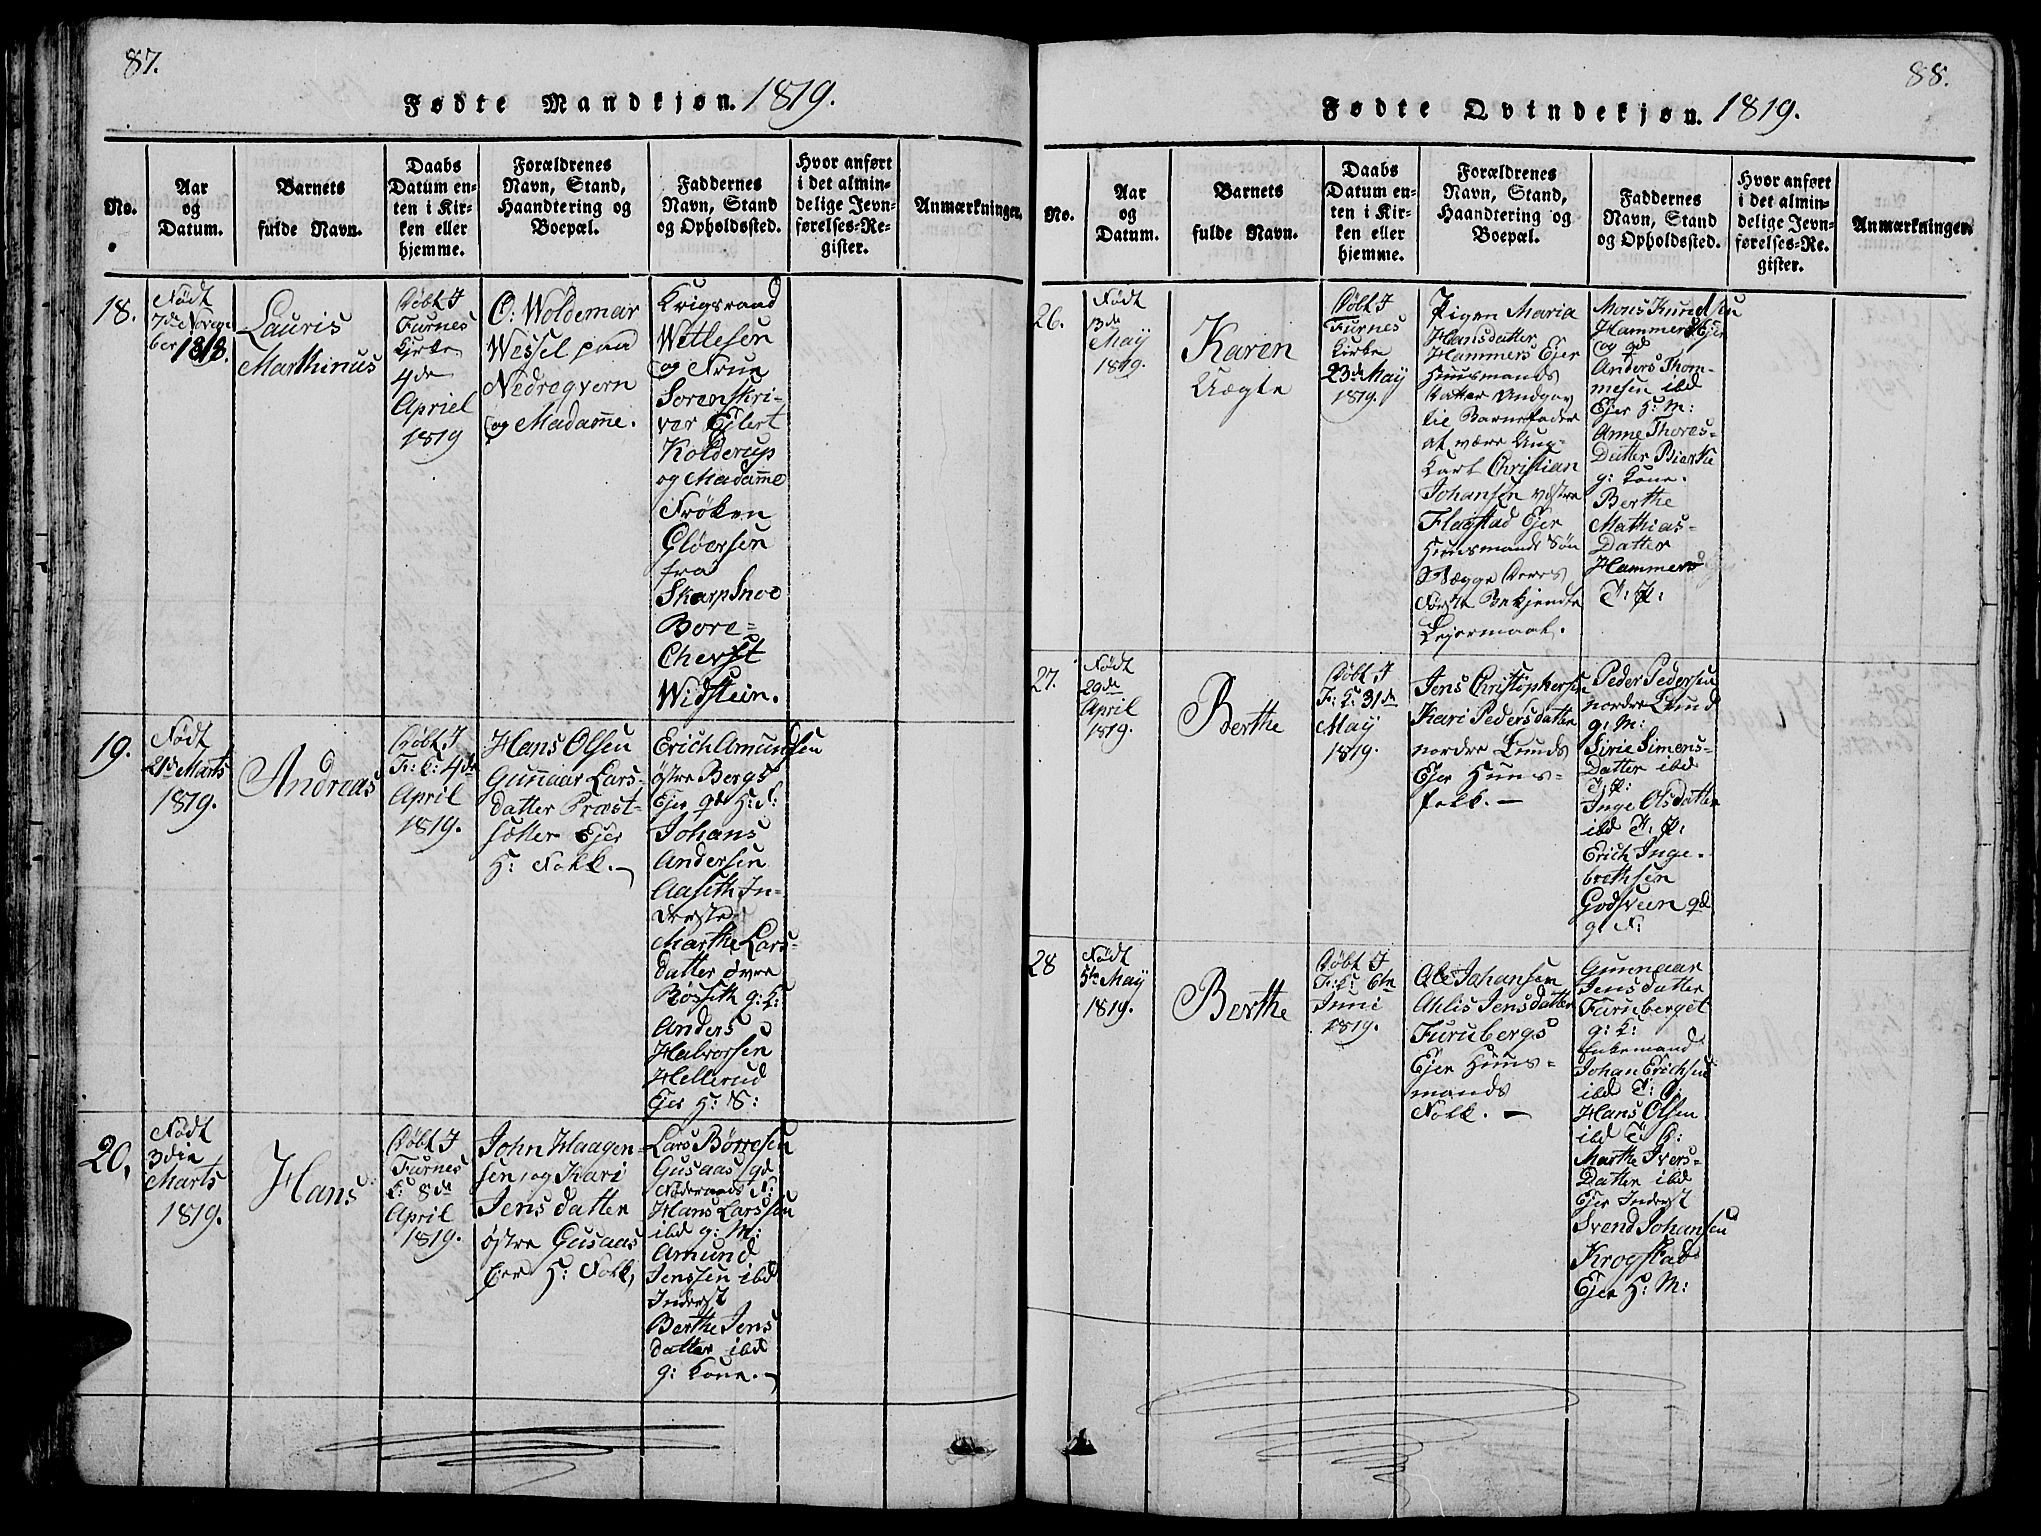 87.
Fødte Mandkjøn. 1819.
No.
Aar
og
Datum.
Barnets
fulde Navn.
Daabs
Datum en-
ten i Kir-
ken eller
hjemme.
Forældrenes
Navn, Stand,
Haandtering og
Boepæl.
Faddernes
Navn, Stand
og Opholdssted.
Hvor anført
i det almin-
delige Jevn-
førelses-Re-
gister.
Anmærkninger.
18.
Født
7de Novem
ber 1818.
Lauris
Marthinus
Døbt I
Furnes
Kirke
4de
Apriel
1819
O: Woldemar
Wessel paa
Nedregvern
og Madame.
Krigsraad
Wetlesen
og Frue
Sorenskri-
ver Ejlert
Kolderup
og Madame
Frøken
Gløersen
fra
Skarpsnoe
Bore-
Cherst
Widstein.
19.
Født
21de Marts
1819.
Andreas
Døbt I
F: K: 4de
April
1819.
Hans Olsen
Gunnaar Lars-
datter Præst-
sætter Ejer
H: Folk.
Erich Amundsen
østre Bergs
Ejer gd H: S:
Johans
Andersen
Aaseth In-
derste
Marthe Lars-
datter øvre
Røsseth g: K:
Anders
Halvorsen
Hellerud
Ejer H: S:
20.
Født
3die
Marts
1819.
Hans
Døbt I
Furnes
K: 8de
April
1819.
John Haagen-
sen og Kari
Jens datter
østre Gusaas
Ejer H: Folk,
Lars Børresen
Gusaas gd
Føderaads F:
Hans Larssen
ibd g: M:
Amund
Jenssen ibd
Inderst
Berthe Jens
datter ibd
g: Kone.
88.
Fødte Qvindekjøn. 1819.
No.
Aar
og
Datum.
Barnets
fulde Navn.
Daabs
Datum en-
ten i Kir-
ken eller
hjemme.
Forældrenes
Navn, Stand,
Haandtering og
Boepæl.
Faddernes
Navn, Stand
og Opholdssted.
Hvor anført
i det almin-
delige Jevn-
førelses-Re-
gister.
Anmærkninger.
26.
Født
13de
May
1819.
Karen
Uægte
Døbt I
Furnes
Kirke
23de May
1819.
Pigen Maria
Hansdatter
Hammers Ejer
Huusmands
Datter Undgav
til Barnefader
at være Ung-
karl Christian
Johansen vestre
Flagstad Ejer
Huusmands Søn
Begge Deres
Første Bekjendte
Lejermaal.
Mons Knudsen
Hammers Ejer
og gd
Anders Thom-
mesen ibd
Ejer H: M:
Anne Thores-
Datter Bierke
g: Kone.
Berthe
Mathias-
Datter
Hammers
T: P:
27.
Født
29de
April
1819.
Berthe
Døbt I
F: K: 31de
May
1819.
Jens Christophersen
Kari Pedersdatter
nordre Lunds
Ejer Huus-
folk.
Peder Pedersen
nordre Lund
g: M:
Sirie Simens-
Datter ibd
T: P:
Inge Olsdatter
ibd T: P:
Erich Inge-
brethsen
Godsveen gd
g: F:
28
Født
5te May
1819.
Berthe
Døbt I
F: K: 6te
Juni
1819.
Ole Johansen
Ahlis Jensdatter
Furubergs
Ejer Huus-
mands
Folk.
Gunnaar
Jens datter
Furuberget
g: K:
Enkemand
Johan Erichsen
ibd T: D:
Hans Olsen
ibd T: D:
Marthe Ivers-
Datter ibd
Ejer Inderst
Svend Johansen
Krogstad-
Ejer H: M: